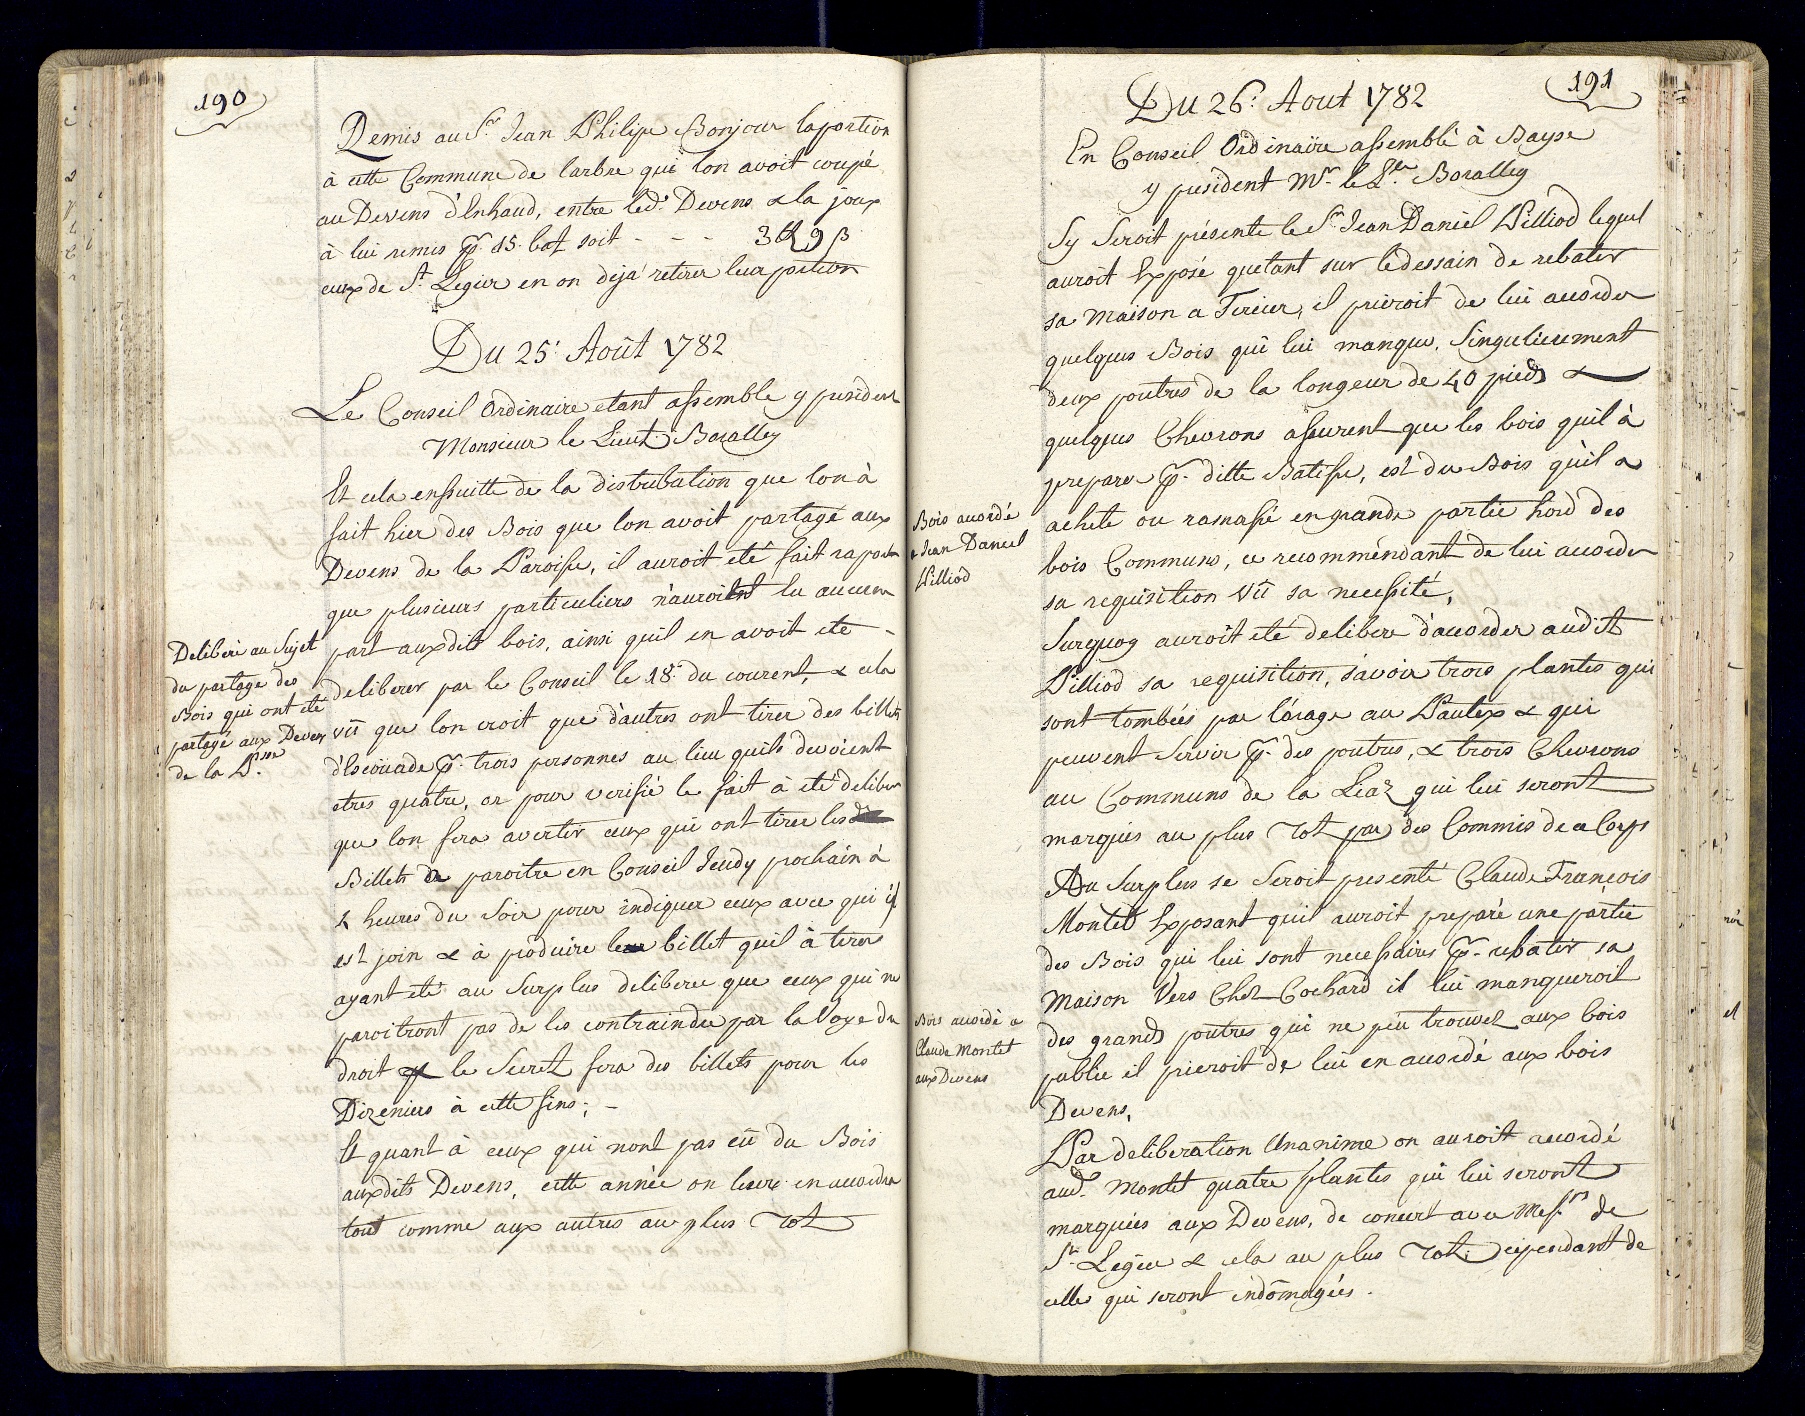 190
Remis au Sr. Jean Philipe Bonjour la portion
à cette Commune de larbre qui lon avoit coupé
au Devens d'Enhaud, entre led. Devens & la joux
à lui remis pr. 15. batz soit - - - 3 fl 9 β
eux de St. Legier en on deja retirer leur portion
Du 25: Août 1782
Le Conseil Ordinaire etant assemble y president
Monsieur le Lieut: Boralley
Et cela ensuitte de la distribution que lon à
fait hier des Bois que lon avoit partagé aux
Devens de la Paroisse, il auroit eté fait raport
que plusieurs particuliers n'auroient lu aucune
part auxdits bois, ainsi quil en avoit ete -
deliberer par le Conseil le 18e du courent, & cela
vû que lon croit que d'autres ont tirer des billets
d'Escouade pr. trois personnes au lieu quils devoient
etres quatre, or pour verifié le fait à eté deliberé
que lon fera avertir ceux qui ont tirer les
Billets de paroitre en Conseil Jeudy prochain à
2 heures du Soir pour indiquer ceux avec qui il
est join & à produire leur billet quil à tirer
ayant eté au Surplus deliberee que ceux qui ne
paroitront pas de les contraindre par la Voye du
droit & le Secret. fera des billets pour les
Dizeniers à cette fins; -
Et quant à ceux qui nont pas eû du Bois
auxdits Devens, cette année on leurs en accordra
tout comme aux autres au plus Tot
Deliberé au Sujet
du partage des
Bois qui ont eté
partagé aux Devens
de la P.sse
191
Du 26: Aout 1782
En Conseil Ordinaire assemblé à Bayse
y president Mr. le Lt. Boralley
Sy Seroit présente le Sr. Jean Daniel Pilliod lequel
auroit Exposé quetant sur le dessain de rebatir
sa maison a Tercier, il prieroit de lui accorder
quelques Bois qui lui manque, Singulierement
deux poutres de la longeur de 40 pieds &
quelques Chevrons assurent que les bois quil à
preparer pr. ditte Batisse, est du Bois qu'il a
achete ou ramassé en grande partie hord des
bois Communs, ce recommendant de lui accorder
sa requisition Vû sa necessité,
Surquoy auroit eté delibere d'accorder audit
Pilliod sa requisition, savoir trois plantes qui
sont tombées par lórage au Pautex & qui
peuvent Servir pr. des poutres, & trois Chevrons
au Communs de la Leaz qui lui seront
marquees au plus Tot par des Commis de ce Corps
Au Surplus se Seroit presenté Claude François
Montet Exposant quil auroit preparé une partie
des Bois qui lui sont necessaires pr. rebatir sa
Maison Vers Chez Cochard il lui manqueroit
des grands poutres qui ne peu trouver aux bois
publie il prieroit de lui en accordé aux bois
Devens,
Par deliberation Unanime on auroit accordé
aud. Montet quatre plantes qui lui seront
marquées aux Devens, de concert avec Messrs de
St. Legier & cela au plus Tot: cependant de
celles qui seront endomagées.
Bois accordé
a Jean Daniel
Pilliod
Bois accordé a
Claude Montet
aux Devens